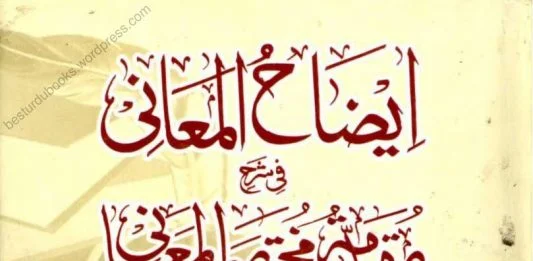 besturdubooks.wordpress.com
اِیضَاحُ المَعَانِی
فِی شَرحِ
مُقدّمَۃ مُختصَر المَعَانِی